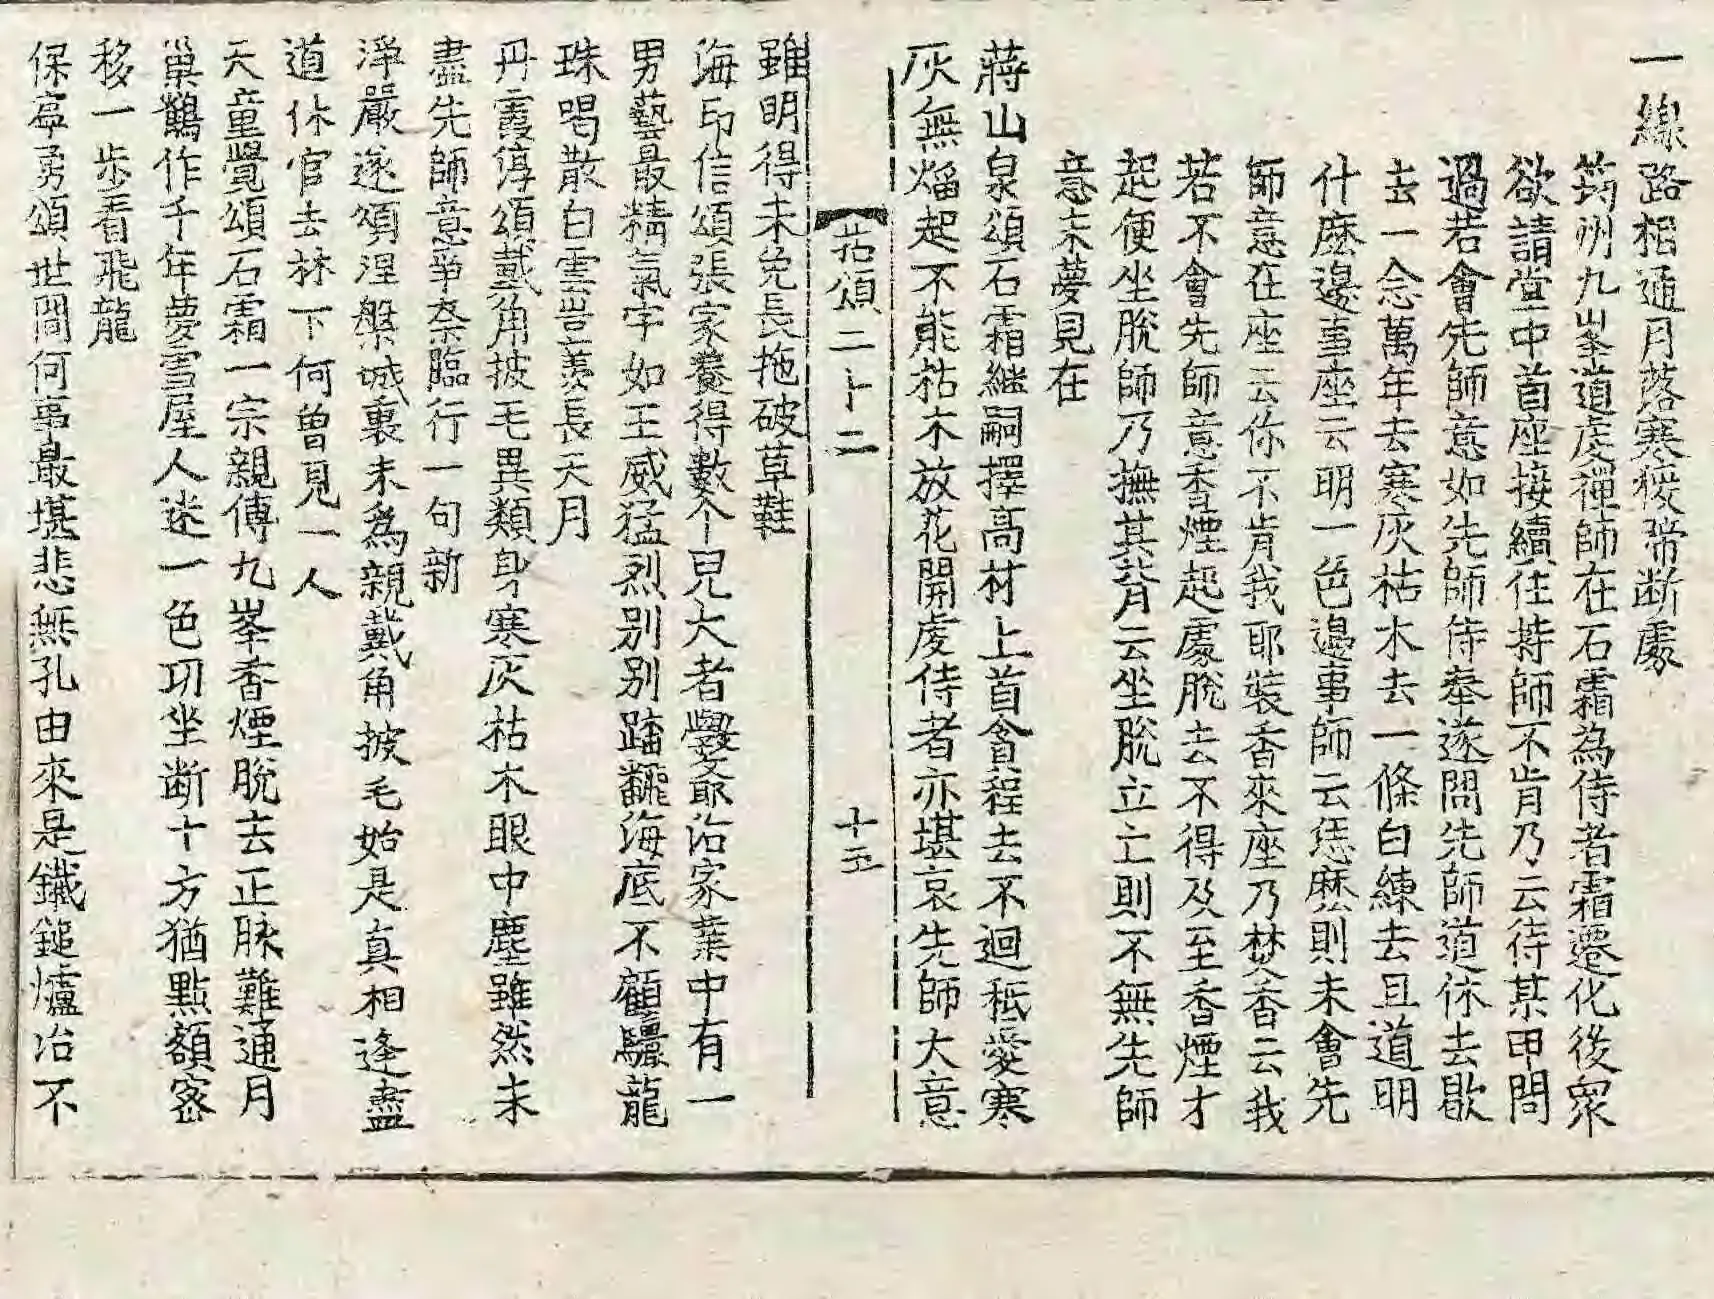 一線路相通月落寒猿啼断處
筠州九峯道虔禪師在石霜為侍者霜遷化後衆
欲請堂中首座接續住持師不肯乃云待某甲問
過若會先師意如先師侍奉遂問先師道休去歇
去一念萬年去寒灰枯木去一條白練去且道明
什麼邊事座云明一色邊事師云恁麼則未會先
師意在座云你不肯我耶裝香來座乃焚香云我
若不會先師意香煙起處脫去不得及至香煙才
起便坐脫師乃撫其背云坐脫立亡則不無先師
意未夢見在
蔣山泉頌石霜継嗣擇高材上首貪程去不迴秖愛寒
灰無焰起不能枯木放花開虔侍者亦堪哀先師大意
拈頌二十二 十五
雖明得未免長拖破草鞋
海印信頌張家養得數个兒大者與爺治家業中有一
男藝最精氣宇如王威猛烈别别踏飜海底不顧驪龍
珠喝散白雲豈羡長天月
丹霞淳頌戴角披毛異類身寒灰枯木眼中塵雖然未
盡先師意爭奈臨行一句新
淨嚴遂頌涅槃城裏未為親戴角披毛始是真相逢盡
道休官去林下何曾見一人
天童覺頌石霜一宗親傳九峯香煙脫去正脉難通月
巢鶴作千年夢雪屋人迷一色功坐断十方猶點額密
移一步看飛龍
保寧勇頌世間何事最堪悲無孔由來是鐵鎚爐冶不